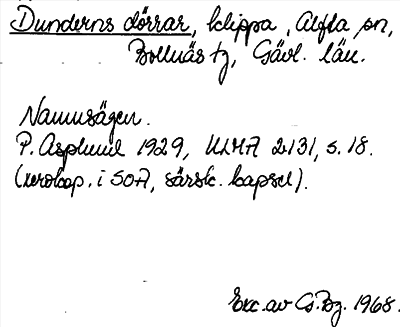 Dunderns dörrar, klippa, Alfta sn,
Bollnäs tg, Gävl. län.
Namnsägen.
P. Asplund 1929, ULMA 2131, s. 18.
(xerokop. i SOA, särsk. kapsel).
Exc. av G. Bg. 1968.